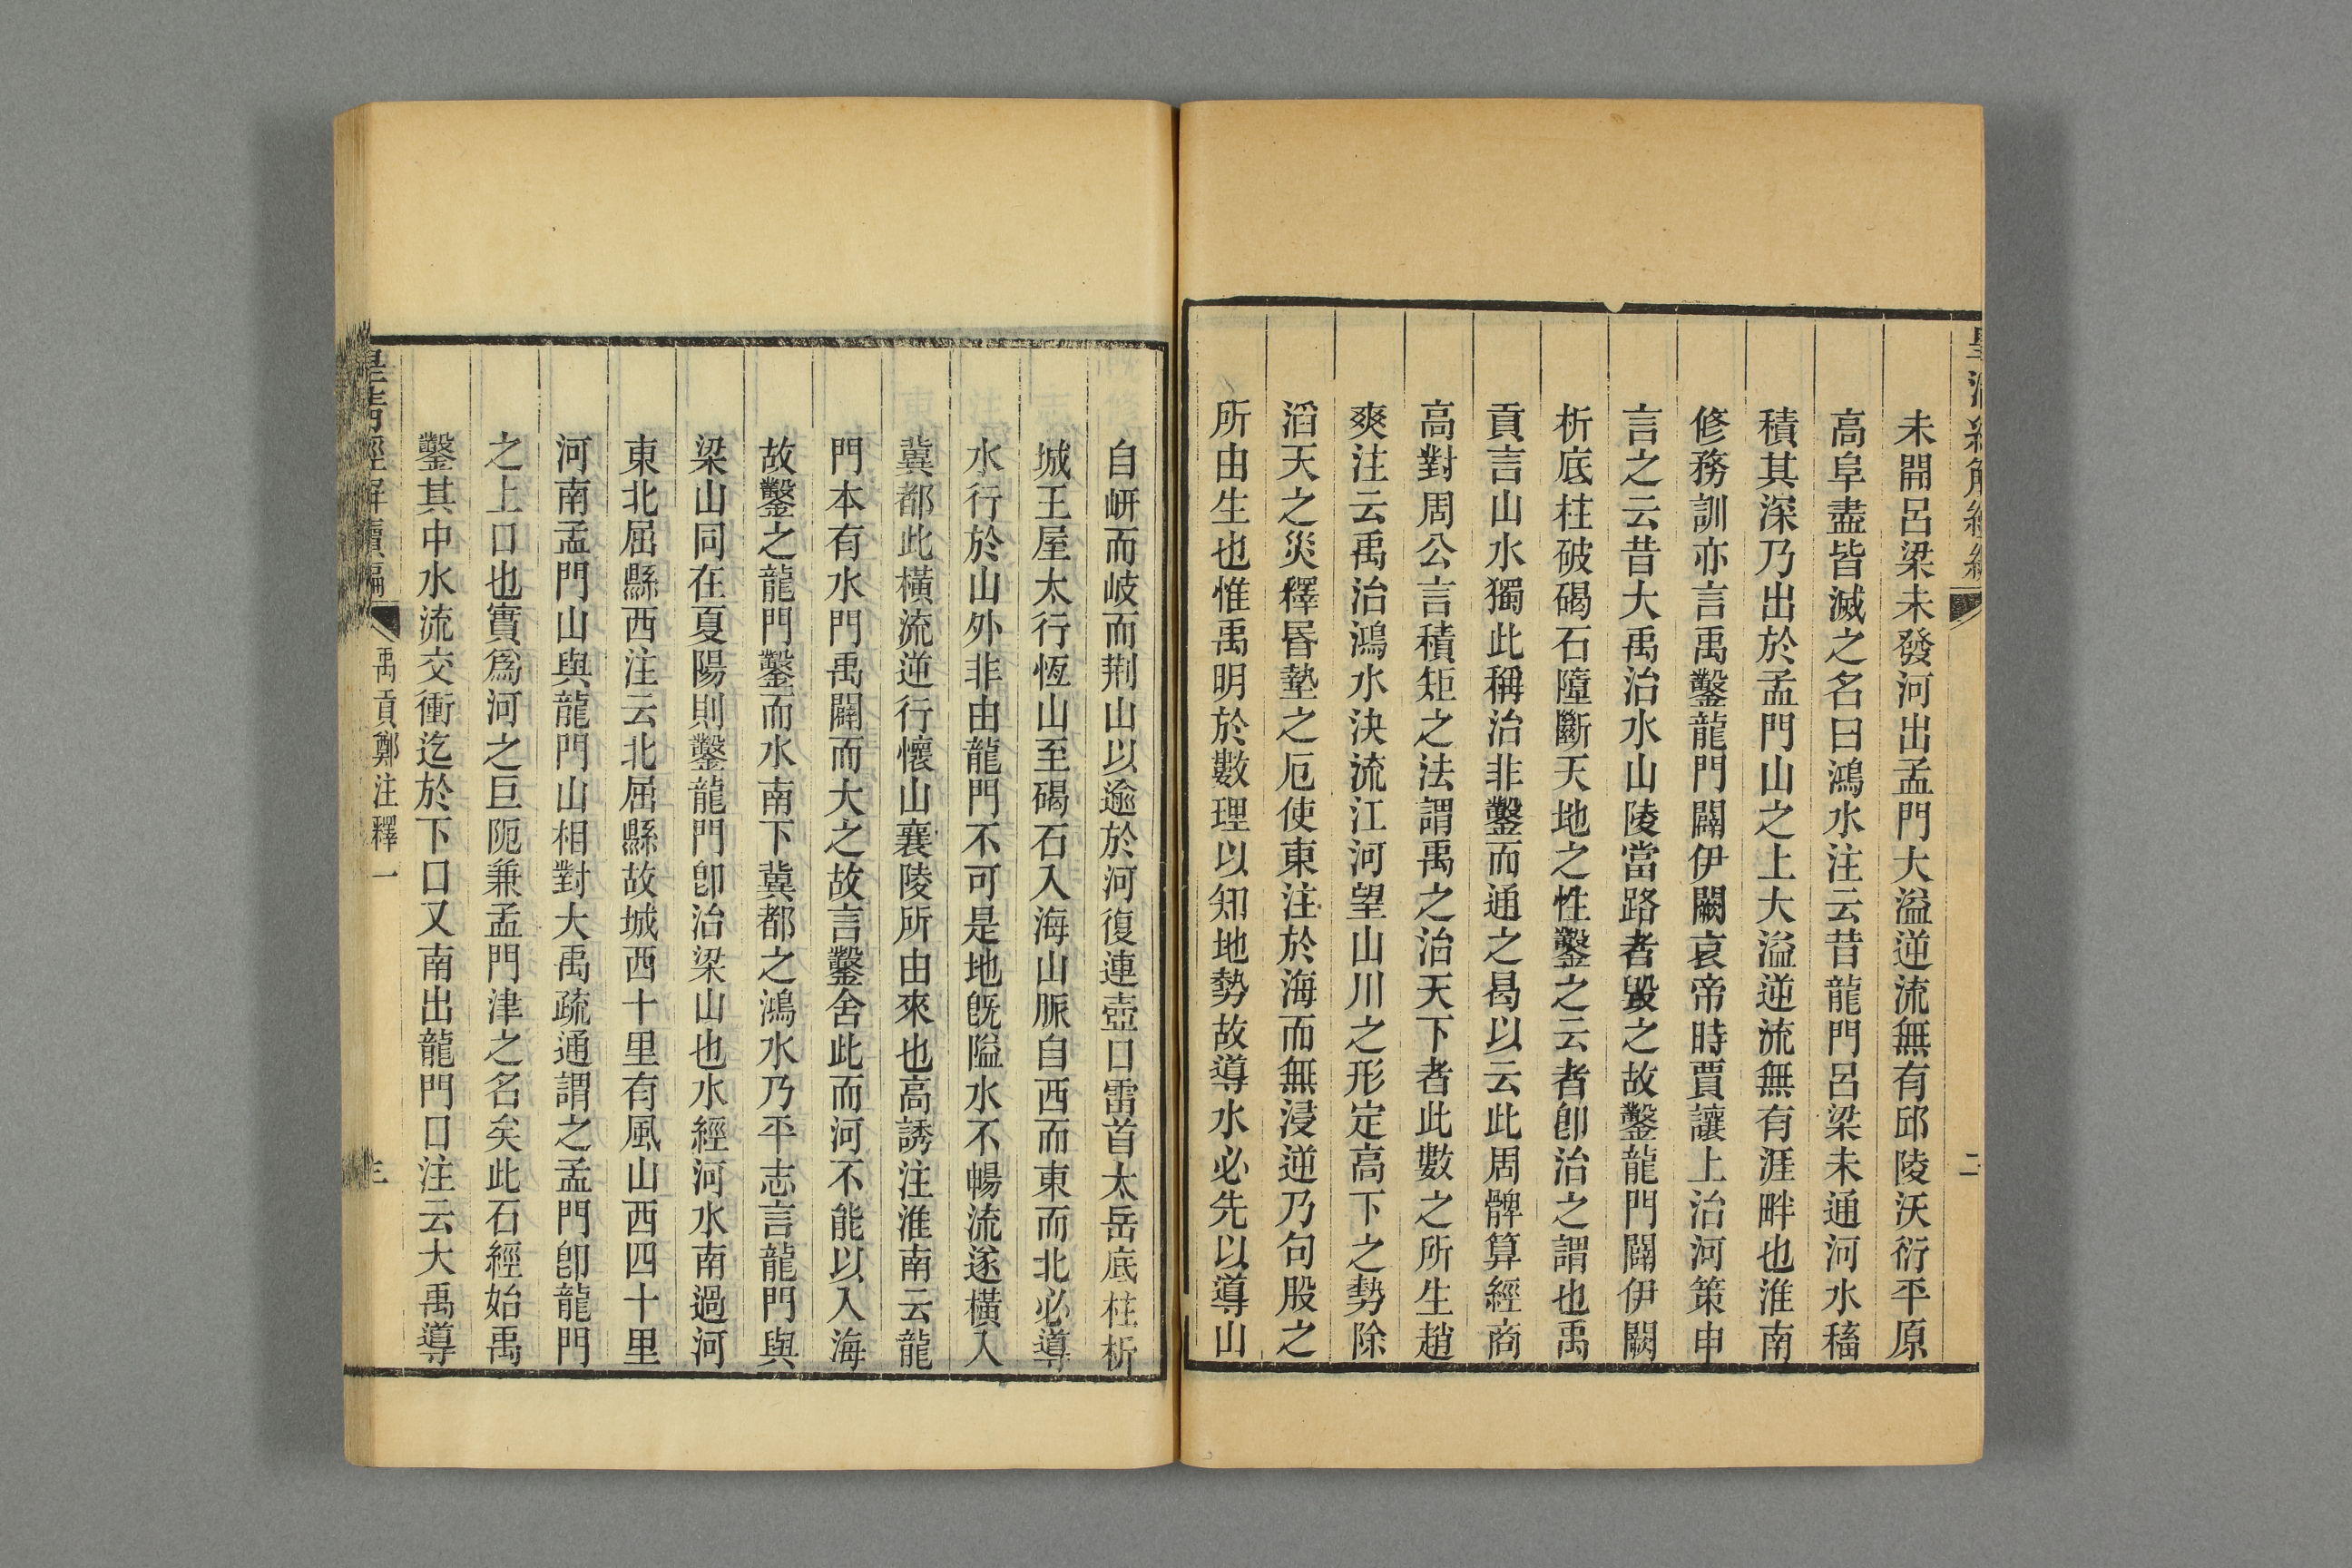 未開呂梁未發河出孟門大溢逆流無有邱陵沃衍平原
高阜盡皆滅之名曰鴻水注云昔龍門呂梁未通河水稸
積其深乃出於孟門山之上大溢逆流無有涯畔也淮南
修務訓亦言禹鑿龍門闢伊闕哀帝時賈讓上治河策申
言之云昔大禹治水山陵當路者毀之故鑿龍門闢伊闕
析底柱破碣石墮斷天地之性鑿之云者卽治之謂也禹
貢言山水獨此稱治非鑿而通之曷以云此周髀算經商
高對周公言積矩之法謂禹之治天下者此數之所生趙
爽注云禹治鴻水決流江河望山川之形定高下之勢除
滔天之災釋昏墊之厄使東注於海而無浸逆乃句股之
所由生也惟禹明於數理以知地勢故導水必先以導山
自岍而岐而荆山以逾於河復連壺口雷首太岳底柱析
城王屋太行恆山至碣石入海山脈自西而東而北必導
水行於山外非由龍門不可是地旣隘水不暢流遂橫入
冀都此橫流逆行懷山襄陵所由來也高誘注淮南云龍
門本有水門禹闢而大之故言鑿舍此而河不能以入海
故鑿之龍門鑿而水南下冀都之鴻水乃平志言龍門與
梁山同在夏陽則鑿龍門卽治梁山也水經河水南過河
東北屈縣西注云北屈縣故城西十里有風山西四十里
河南孟門山與龍門山相對大禹疏通謂之孟門卽龍門
之上口也實爲河之巨阨兼孟門津之名矣此石經始禹
鑿其中水流交衝迄於下口又南出龍門口注云大禹導
皇淸經解續編
禹貢鄭注釋一
三